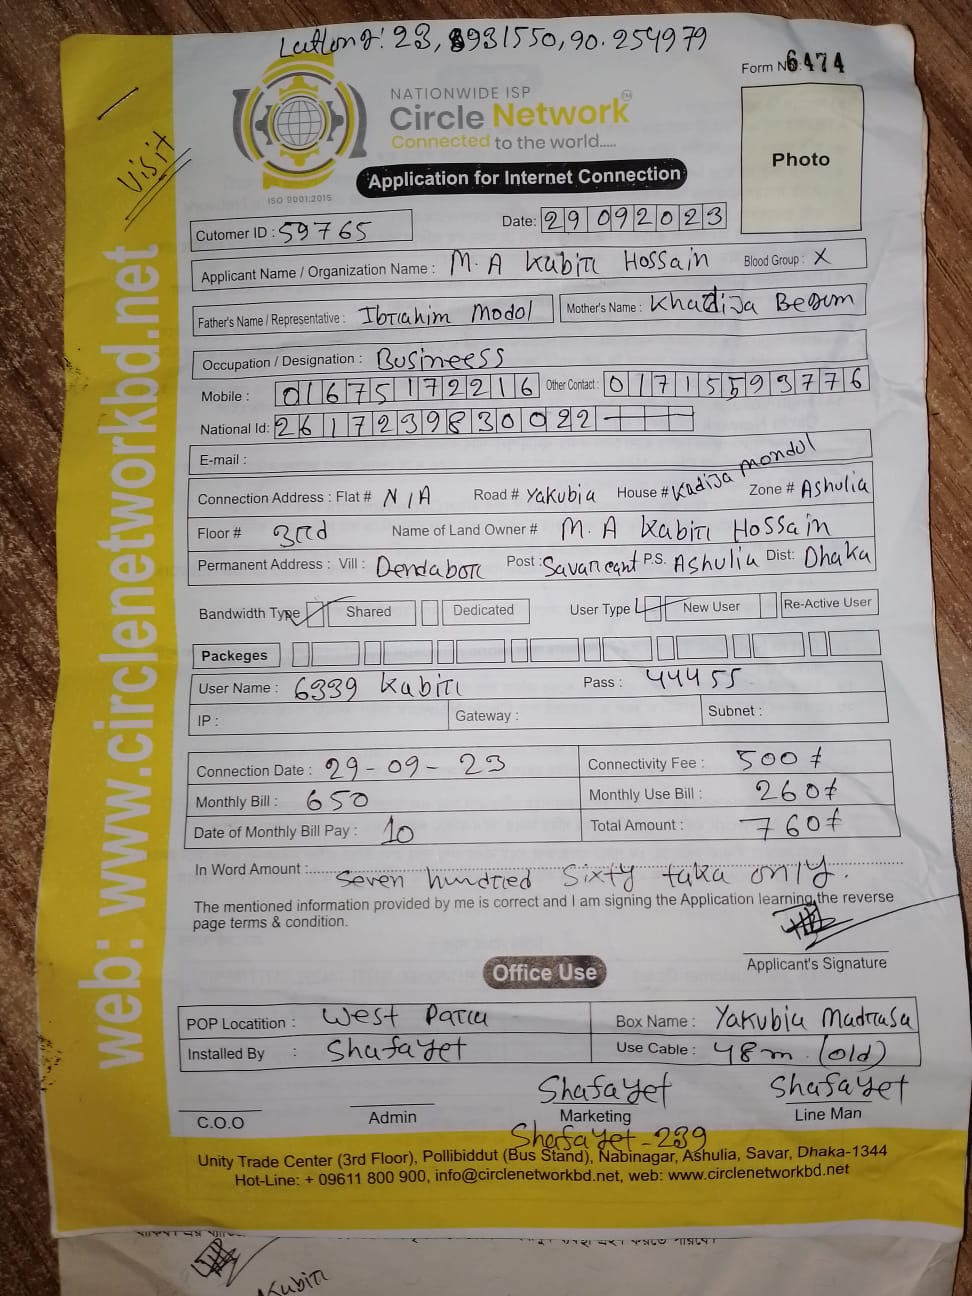 Latlong: 23,8931550,90.254979
Form No 6474
NATIONWIDE ISP
Circle Network TM
Connected to the world.....
ISO 9001:2015
Application for Internet Connection
Photo
Visit
web: www.circlenetworkbd.net
Cutomer ID : 59765 Date: 29092023
Applicant Name / Organization Name : M. A Kabir Hossain Blood Group : X
Father's Name / Representative : Ibrahim Modol Mother's Name : Khadija Begum
Occupation / Designation : Busineess
Mobile : 01675172216 Other Contact : 01715593776
National Id: 2617239830022
E-mail :
Connection Address : Flat # N/A Road # Yakubia House # Kadija mondol Zone # Ashulia
Floor # 3rd Name of Land Owner # M. A Kabir Hossain
Permanent Address : Vill : Dendabor Post : Savar cant P.S. Ashulia Dist: Dhaka
Bandwidth Type Shared Dedicated User Type New User Re-Active User
Packeges
User Name : 6339 Kabir Pass : 44455
IP : Gateway : Subnet :
Connection Date : 29-09-23 Connectivity Fee : 500/
Monthly Bill : 650 Monthly Use Bill : 260/
Date of Monthly Bill Pay : 10 Total Amount : 760/
In Word Amount : seven hundried Sixty taka only.
The mentioned information provided by me is correct and I am signing the Application learning the reverse
page terms & condition.
Applicant's Signature
Office Use
POP Locatition : West Para Box Name : Yakubia Madrasa
Installed By : Shafayet Use Cable : 48m. (old)
Shafayet Shafayet
C.O.O Admin Marketing Line Man
Shafayet-239
Unity Trade Center (3rd Floor), Pollibiddut (Bus Stand), Nabinagar, Ashulia, Savar, Dhaka-1344
Hot-Line: + 09611 800 900, info@circlenetworkbd.net, web: www.circlenetworkbd.net
Kubir